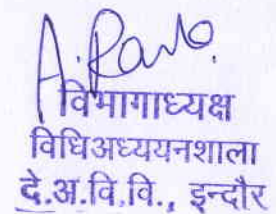 A. Rao.
विभागाध्यक्ष
विधिअध्ययनशाला
दे.अ.वि.वि., इन्दौर